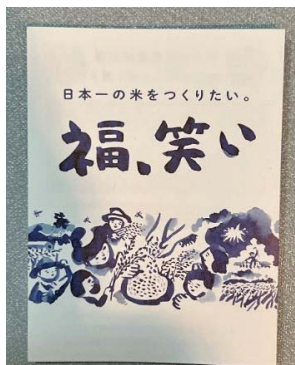 日本一の米をつくりたい。
福、笑い